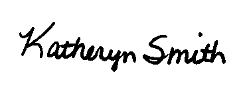 Katheryn Smith